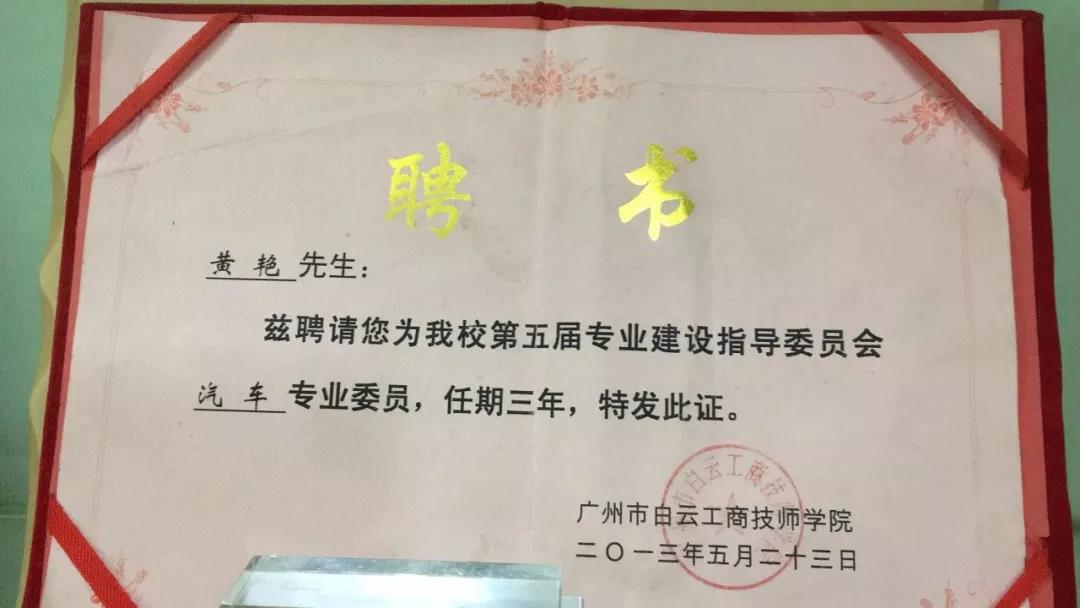 聘 书
黄 艳 先生：
兹聘请您为我校第五届专业建设指导委员会
汽 车 专业委员，任期三年，特发此证。
广州市白云工商技师学院
二〇一三年五月二十三日
市白云工商技